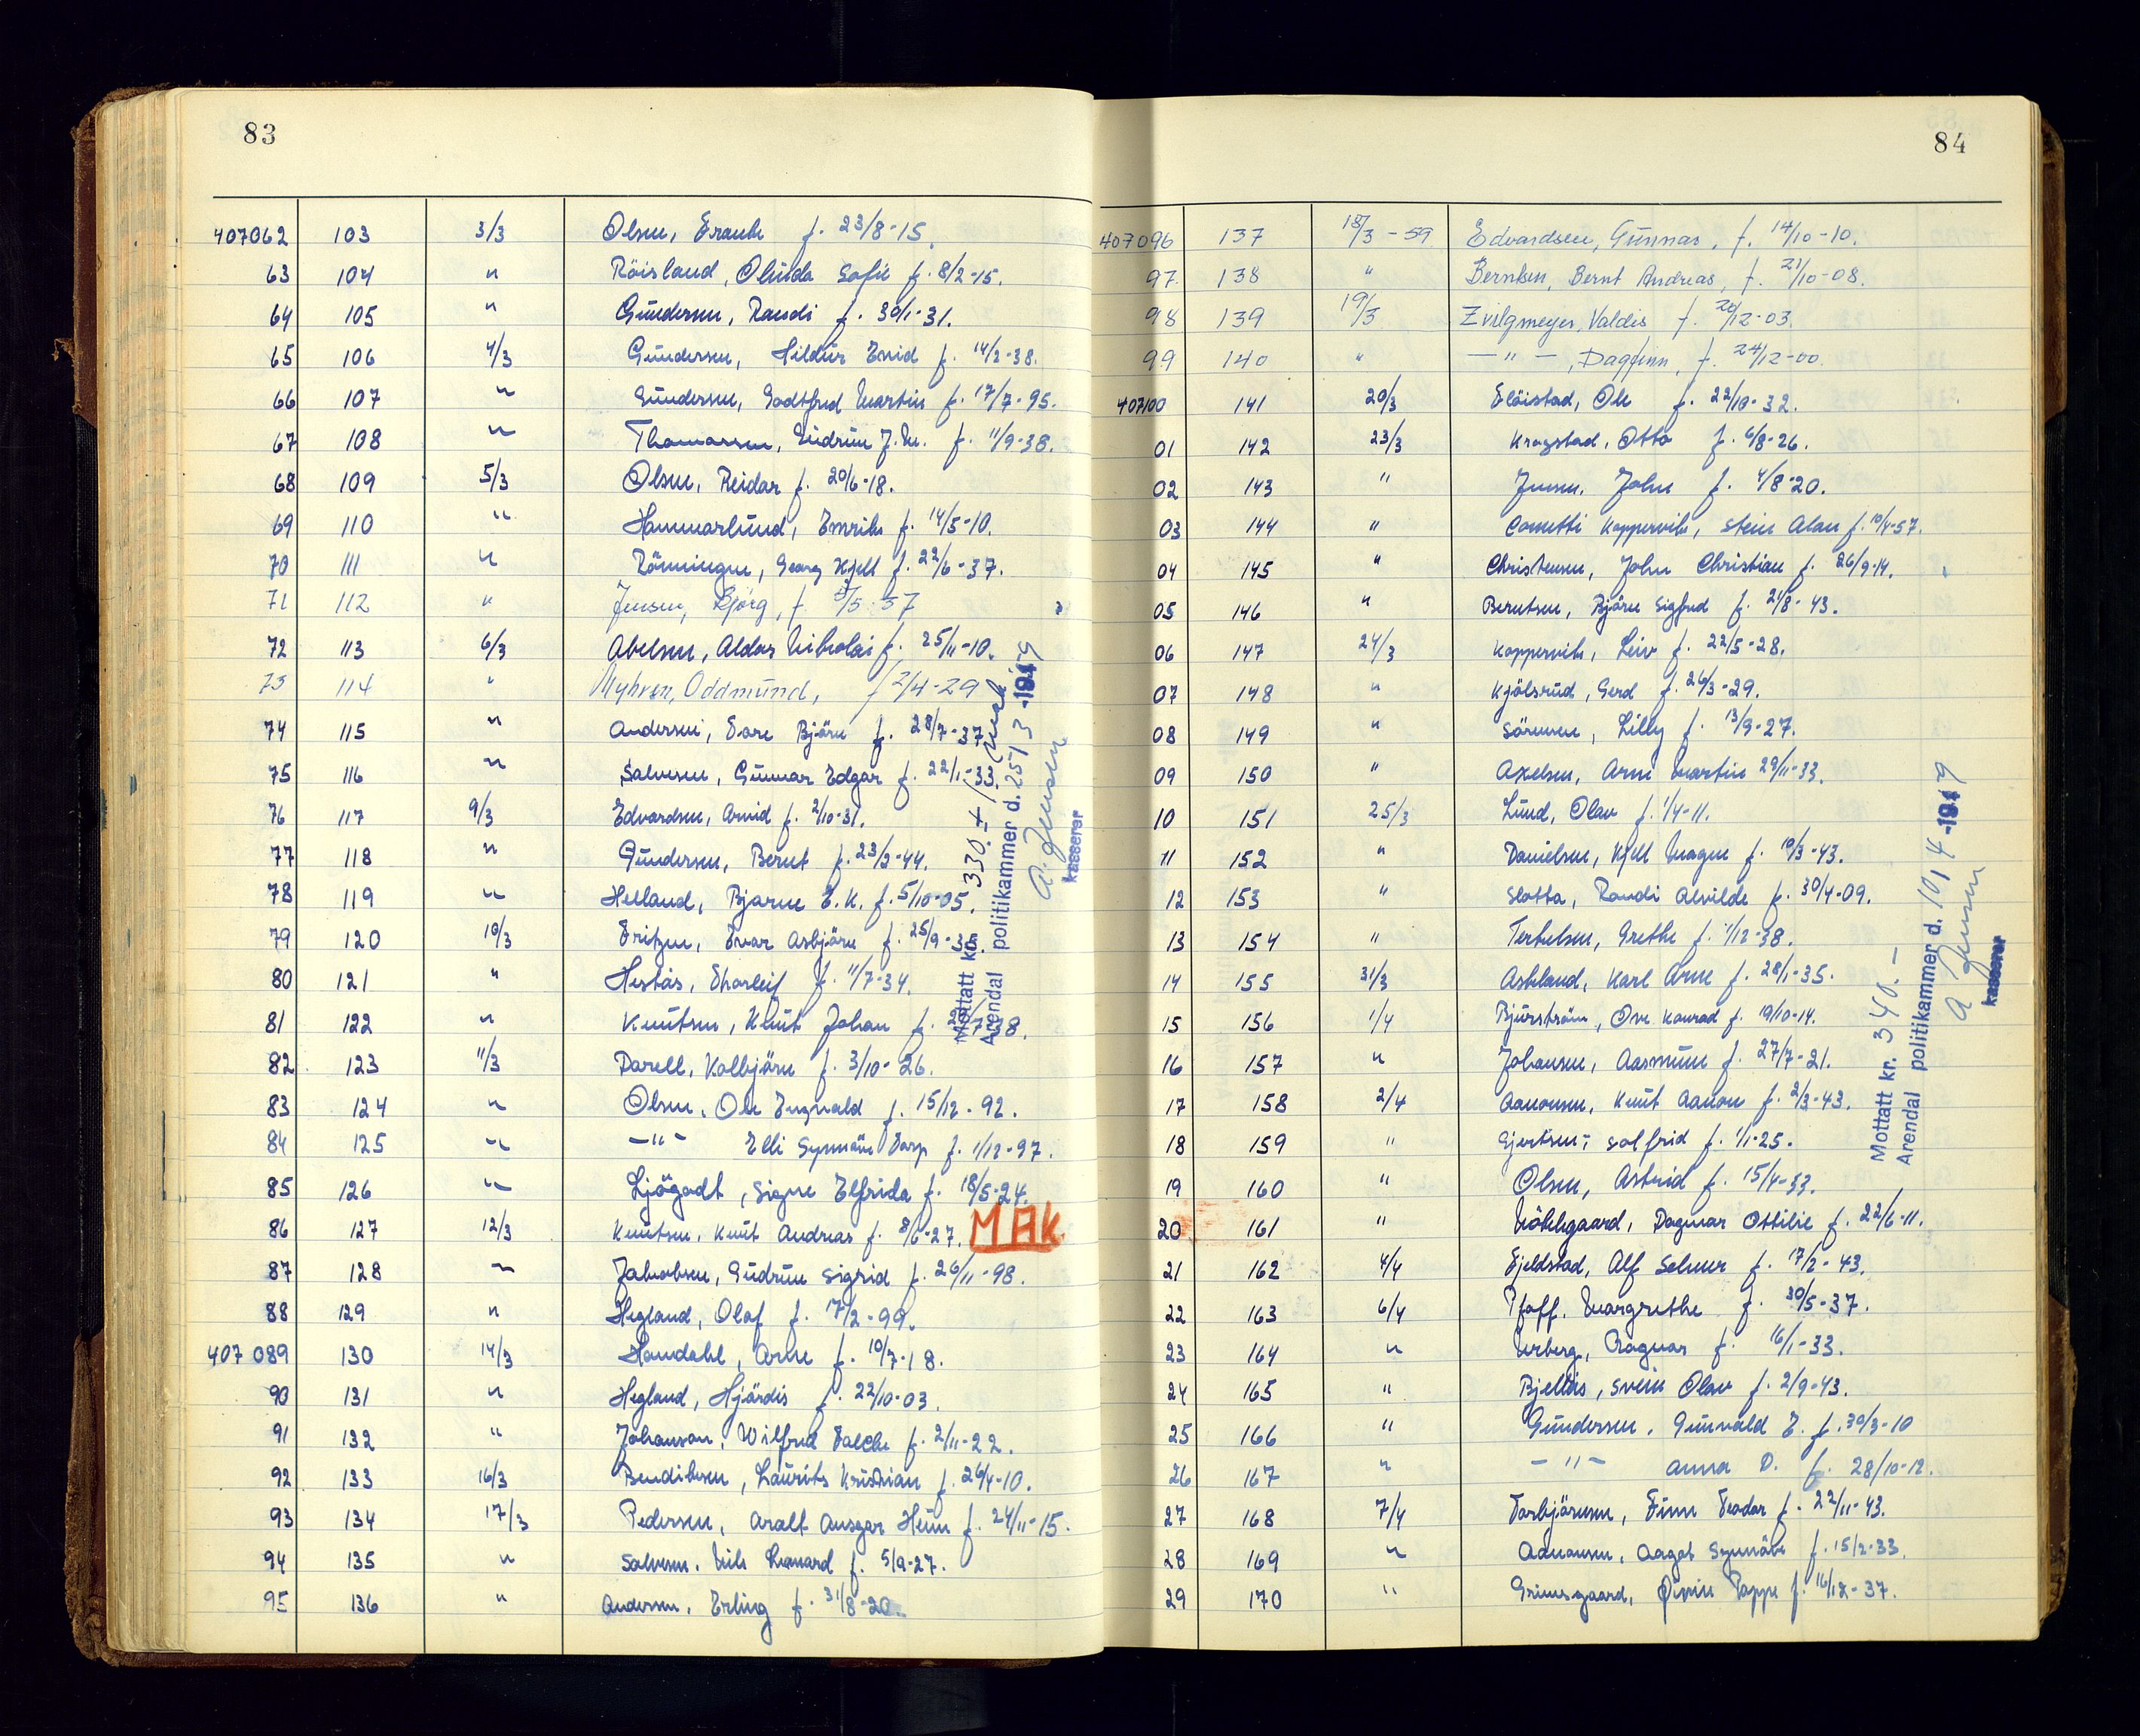 83
407062 103 3/3 Olsen, Frank f. 23/8-15.
63 104 " Röisland, Olinda Sofie f. 8/2-15.
64 105 " Gundersen, Randi f. 30/1-31.
65 106 4/3 Gundersen, Hildur Enid f. 14/2-38.
66 107 " Gundersen, Godtfred Martin f. 17/7-95.
67 108 " Thomassen, Gudrun J. M. f. 11/9-38.
68 109 5/3 Olsen, Reidar f. 20/6-18.
69 110 " Hammarlund, Emrik f. 14/5-10.
70 111 " Rönningen, Georg Kjell f. 22/6-37.
71 112 " Jensen, Bjørg, f. 5/5-37
72 113 6/3 Abelsen, Aldor Nikolai f. 25/11-10.
73 114 " Myhren, Oddmund, f 2/4-29
74 115 " Andersen, Tore Björn f. 28/7-37
75 116 " Salvesen, Gunnar Edgar f. 22/1-33.
76 117 9/3 Edvardsen, Arvid f. 2/10-31.
77 118 " Gundersen, Bernt f. 23/2-44.
78 119 " Helland, Bjarne E. K. f. 5/10-05.
79 120 10/3 Fritzen, Ivar Asbjörn f. 25/9-35.
80 121 " Hestås, Thorleif f. 11/7-34.
81 122 " Knutsen, Knut Johan f. 7-38.
82 123 11/3 Darell, Kolbjörn f. 3/10-26.
83 124 " Olsen, Ole Ingvald f. 15/12-92.
84 125 " —"— Elli Synnöve Torp f. 1/12-97.
85 126 " Ljögodt, Signe Elfrida f. 18/5-24.
86 127 12/3 Knutsen, Knut Andreas f. 8/6-27. MAK
87 128 " Jakobsen, Gudrun Sigrid f. 26/11-98.
88 129 " Hegland, Olaf f. 17/2-99.
407089 130 14/3 Haudahl, Arne f. 10/7-18.
90 131 " Hegland, Hjördis f. 22/10-03.
91 132 " Johanson, Wilfred f. 2/11-22.
92 133 16/3 Bendiksen, Laurits Kristian f. 26/4-10.
93 134 17/3 Pedersen, Aralt Ansgar Heim f. 24/11-15.
94 135 " Salvesen, Nils Leonard f. 5/9-27.
95 136 " Andersen, Erling f. 31/8-20.
Mottatt kr. 330.-
Arendal politikammer d. 25/3-1959
A. Jensen
kasserer
84
407096 137 18/3-59 Edvardsen, Gunnar, f. 14/10-10.
97 138 " Berntsen, Bernt Andreas, f. 21/10-08.
98 139 19/3 Zwilgmeyer, Valdis f. 20/12-03.
99 140 " —"—, Dagfinn, f. 24/12-00.
407100 141 20/3 Flöistad, Ole f. 22/10-32.
01 142 23/3 Kragstad, Otto f. 6/8-26.
02 143 " Jensen, John f. 4/8-20.
03 144 " Cometti Koppervik, Stein Alan f. 10/4-57.
04 145 " Christensen, John Christian f. 26/9-14.
05 146 " Berntsen, Björn Sigfred f. 21/8-43.
06 147 24/3 Koppervik, Leiv f. 22/5-28.
07 148 " Kjölsrud, Gerd f. 26/3-29.
08 149 " Sörensen, Lilly f. 13/9-27.
09 150 " Axelsen, Arne Martin 29/11-33.
10 151 25/3 Lund, Olav f. 1/4-11.
11 152 " Danielsen, Kjell Magne f. 10/3-43.
12 153 " Slotta, Randi Alvilde f. 30/4-09.
13 154 " Terkelsen, Grethe f. 1/12-38.
14 155 31/3 Askland, Karl Arne f. 28/1-35.
15 156 1/4 Bjurström, Ove Konrad f. 19/10-14.
16 157 " Johansen, Aasmund f. 27/7-21.
17 158 2/4 Aanonsen, Knut Aanon f. 2/3-43.
18 159 " Gjertsen, Solfrid f. 1/1-25.
19 160 " Olsen, Astrid f. 15/4-33.
20 161 " Nökkegaard, Dagmar Ottilie f. 22/6-11.
21 162 4/4 Fjeldstad, Alf Selmer f. 17/2-43.
22 163 6/4 Pfaff, Margrethe f. 30/5-37.
23 164 " Urberg, Ragnar f. 16/1-33.
24 165 " Bjellås, Svein Olav f. 2/9-43.
25 166 " Gundersen, Gunvald E. f. 30/3-10
26 167 " —"— Anna D. f. 28/10-12.
27 168 7/4 Torbjörnsen, Finn Teodor f. 22/11-43.
28 169 " Aanonsen, Aagot Synnöve f. 15/2-33.
29 170 " Grimsgaard, Pappe f. 16/12-37.
Mottatt kr. 340.-
Arendal politikammer d. 10/4-1959
A Jensen
kasserer